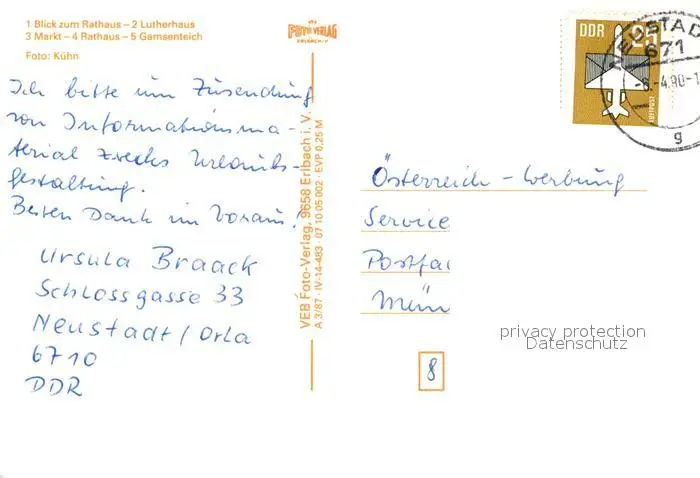 1 Blick zum Rathaus – 2 Lutherhaus
3 Markt – 4 Rathaus – 5 Gamsenteich
Foto: Kühn
Ich bitte um Zusendung
von Informationsma-
terial zwecks Urlaubs-
gestaltung.
Besten Dank im Voraus!
Ursula Braack
Schlossgasse 33
Neustadt/Orla
6710
DDR
VEB Foto-Verlag, 9658 Erlbach i. V.
A 3/87 · IV-14-483 · 07 10 05 002 · EVP 0,25 M
FOTO VERLAG
ERLBACH/V
DDR
LUFTPOST
NEUSTAD
671
-6.-4.90-1
g
Österreich-Werbung
Service
Postfa
Mün
8
privacy protection
Datenschutz